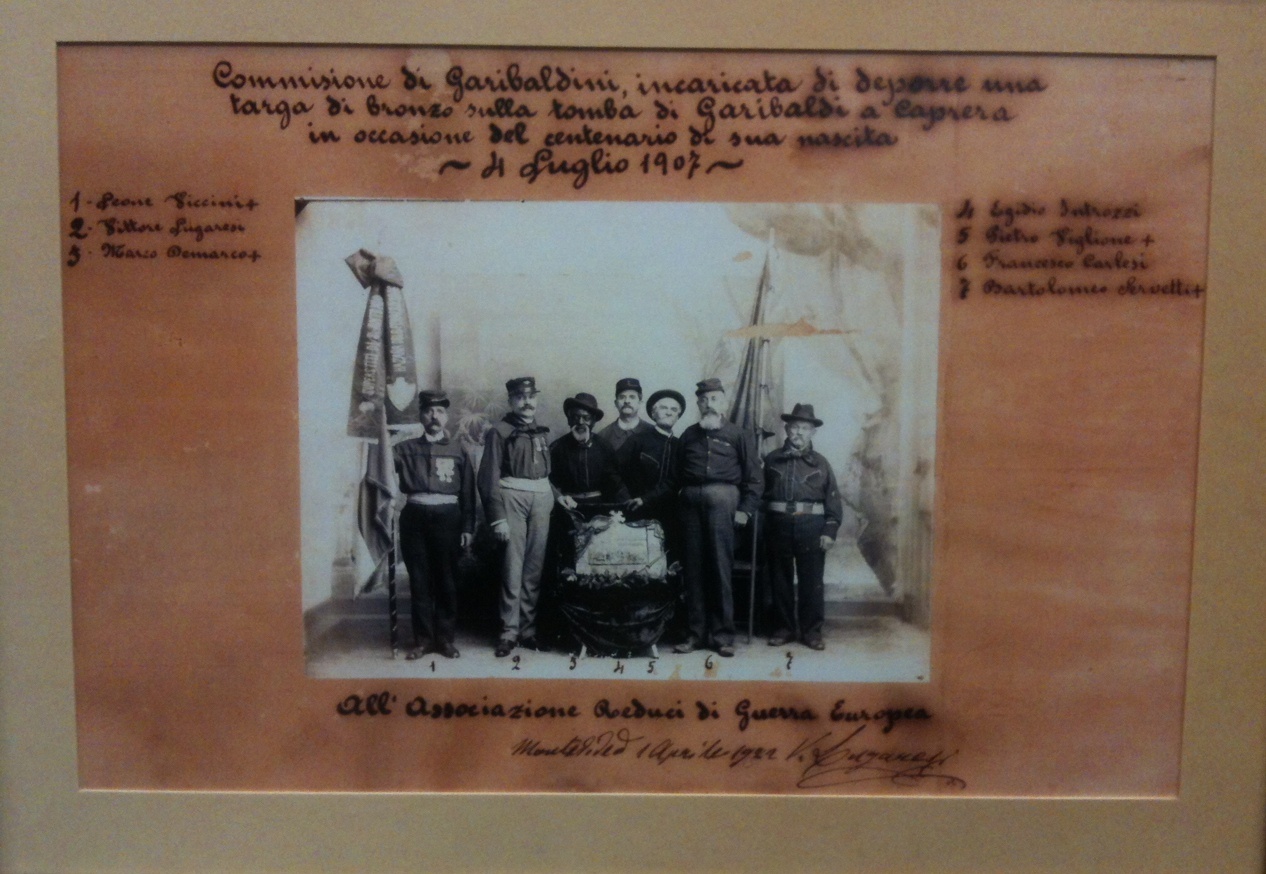 Commisione di Garibaldini, incaricata di deporre una
targa di bronzo sulla tomba di Garibaldi a Caprera
in occasione del centenario di sua nascita
~ 4 Luglio 1907 ~
1- Leone Viccini+
2- Vittore Lugaresi
3- Marco Demarco+
4 Egidio Introzzi
5 Pietro Viglione +
6 Francesco Carlesi
7 Bartolomeo Servetti+
1 2 3 4 5 6 7
All' Associazione Reduci di Guerra Europea
1 Aprile 1922 V. Lugaresi